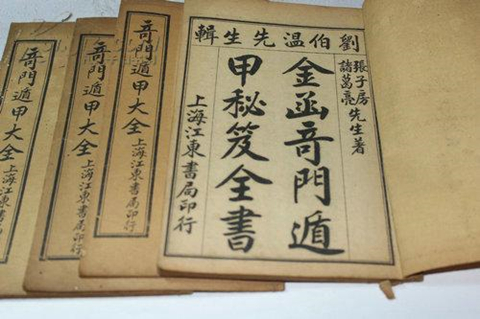 劉伯温先生輯
張子房
諸葛亮
先生著
金函竒門遁
甲秘笈全書
上海江東書局印行
竒門遁甲大全
上海江東書局印行
竒門遁甲大全
上海江東書局印行
竒門遁甲大全
上海江東書局印行